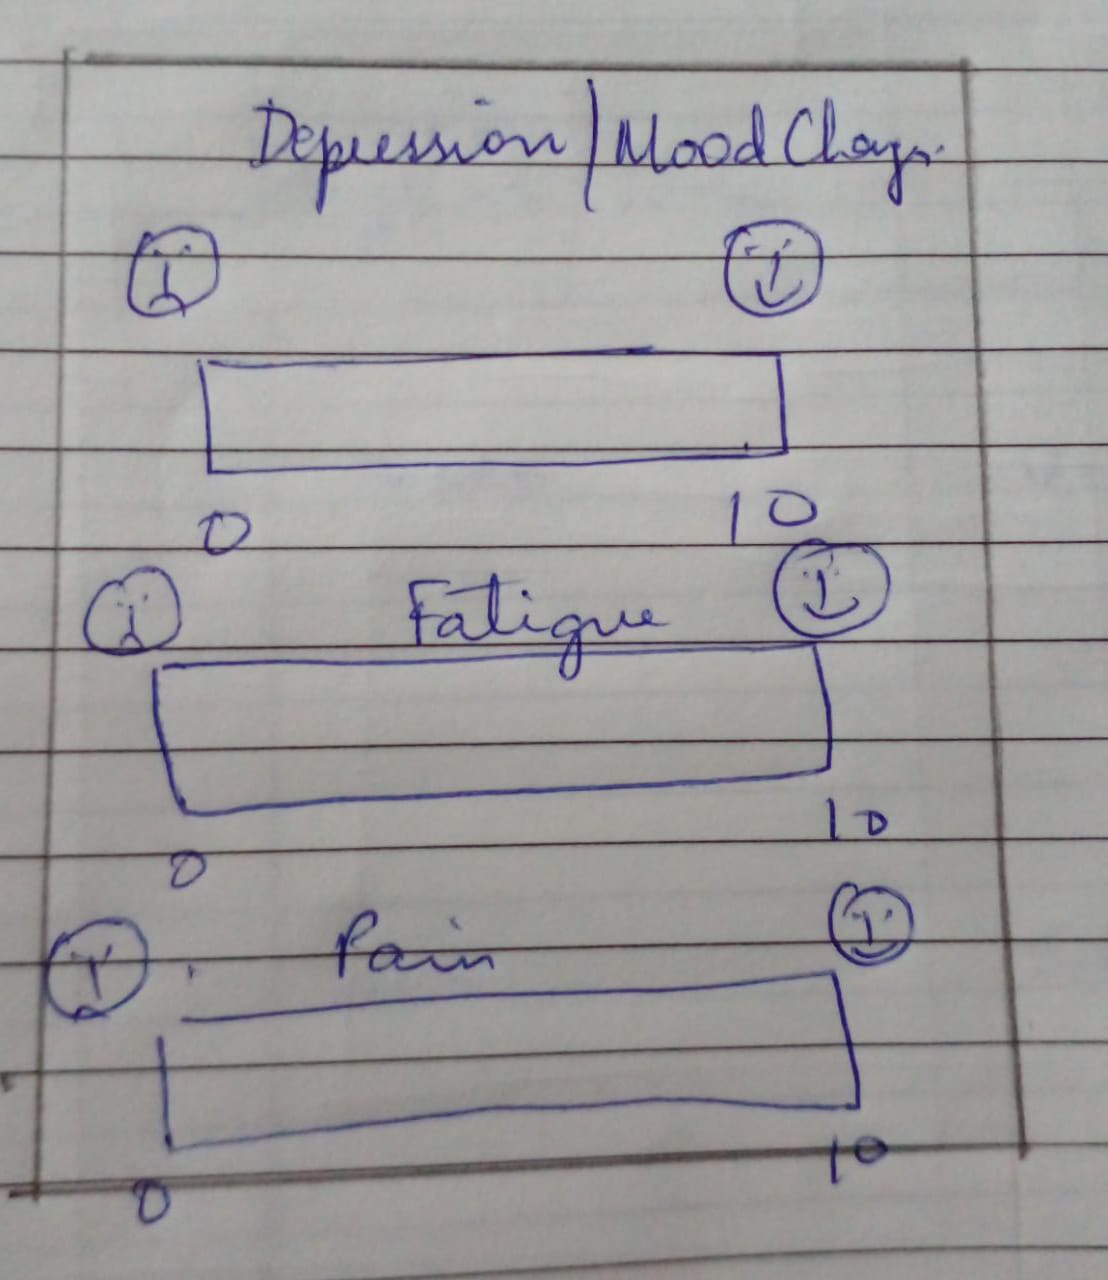 Depression / Mood Changes
0 10
Fatigue
0 10
Pain
0 10